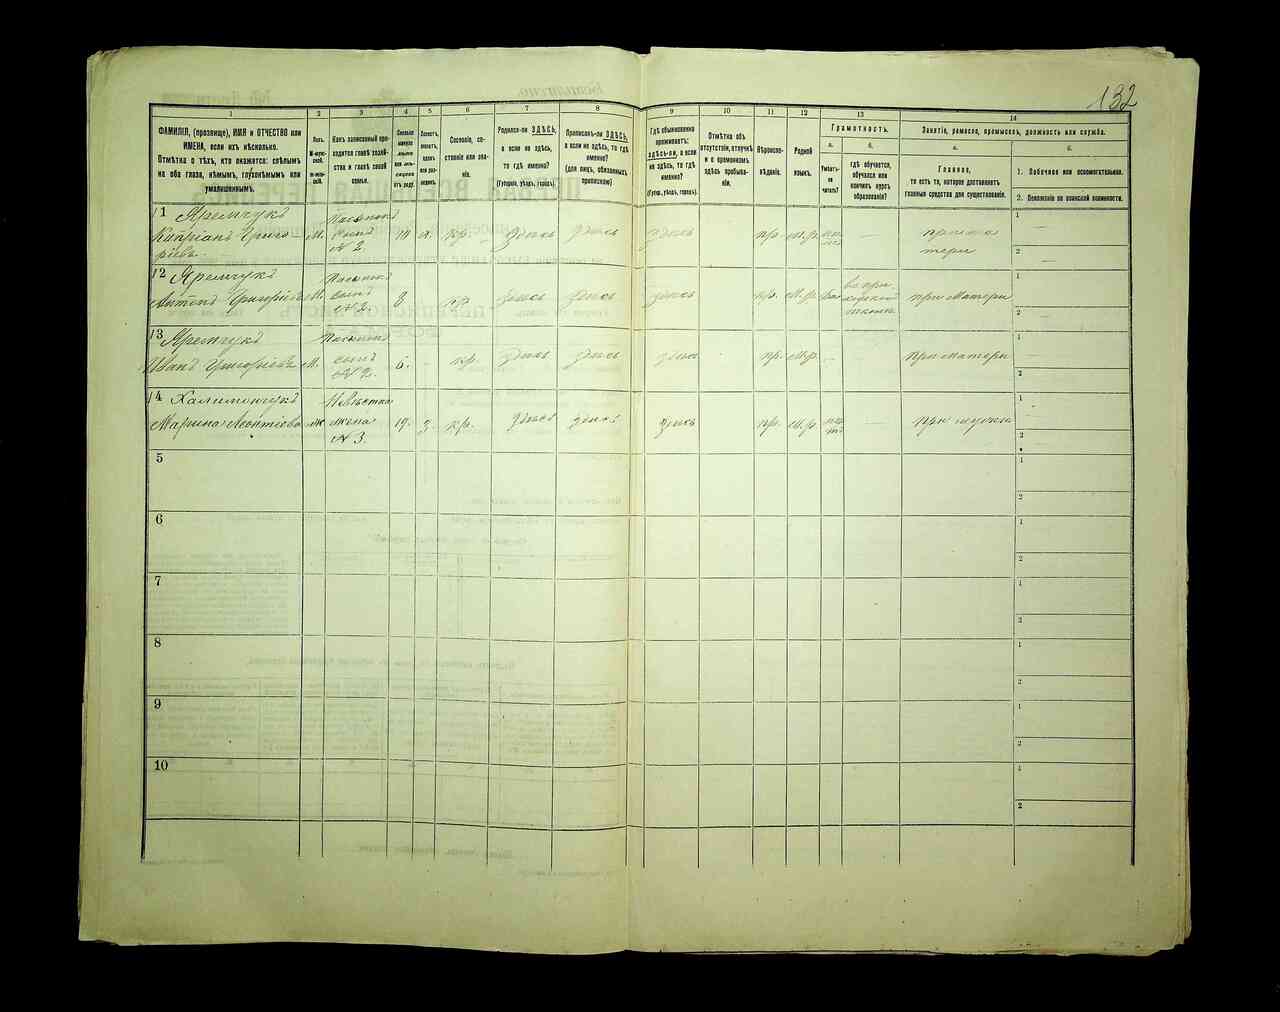 132
1
2
3
4
5
6
7
8
9
10
11
12
13
14
ФАМИЛІЯ, (прозвище), ИМЯ и ОТЧЕСТВО или
ИМЕНА, если ихъ нѣсколько.
Отмѣтка о тѣхъ, кто окажется: слѣпымъ
на оба глаза, нѣмымъ, глухонѣмымъ или
умалишеннымъ.
Полъ.
М-муж-
ской.
Ж-жен-
скій.
Какъ записанный при-
ходится главѣ хозяй-
ства и главѣ своей
семьи.
Сколько
минуло
лѣтъ
или мѣ-
сяцевъ
отъ роду.
Холостъ,
женатъ,
вдовъ
или раз-
веденъ.
Сословіе, со-
стояніе или зва-
ніе.
Родился-ли ЗДѢСЬ,
а если не здѣсь,
то гдѣ именно?
(Губернія, уѣздъ, городъ).
Приписанъ-ли ЗДѢСЬ,
а если не здѣсь, то гдѣ
именно?
(для лицъ, обязанныхъ
припискою)
Гдѣ обыкновенно
проживаетъ:
здѣсь-ли, а если
не здѣсь, то гдѣ
именно?
(Губерн., уѣздъ, городъ).
Отмѣтка объ
отсутствіи, отлучкѣ
и о временномъ
здѣсь пребыва-
ніи.
Вѣроиспо-
вѣданіе.
Родной
языкъ.
Грамотность.
а.
Умѣетъ-
ли
читать?
б.
гдѣ обучается,
обучался или
кончилъ курсъ
образованія?
Занятіе, ремесло, промыселъ, должность или служба.
а.
Главное,
то есть то, которое доставляетъ
главныя средства для существованія.
б.
1. Побочное или вспомогательное.
2. Положеніе по воинской повинности.
11 Яремчукъ
Кипріанъ Григо-
ріевъ. М. Пасынокъ сынъ N 2. кр. здѣсь здѣсь здѣсь пр. М.р. — при матери
1
2
12 Яремчукъ
Антонъ Григоріевъ М. Пасынокъ сынъ N 2. 8 кр. здѣсь здѣсь здѣсь пр. М.р. при матери
1
2
13 Яремчукъ
Иванъ Григоріевъ М. Пасынокъ сынъ N 2. 6. - кр. здѣсь здѣсь здѣсь пр. М.р. - при матери
1
2
14 Халимончукъ
Марина Леонтіева Ж Невѣстка жена N 3. 19. З кр. здѣсь здѣсь здѣсь пр. М.р. — при мужѣ
1
2
5
1
2
6
1
2
7
1
2
8
1
2
9
1
2
10
1
2